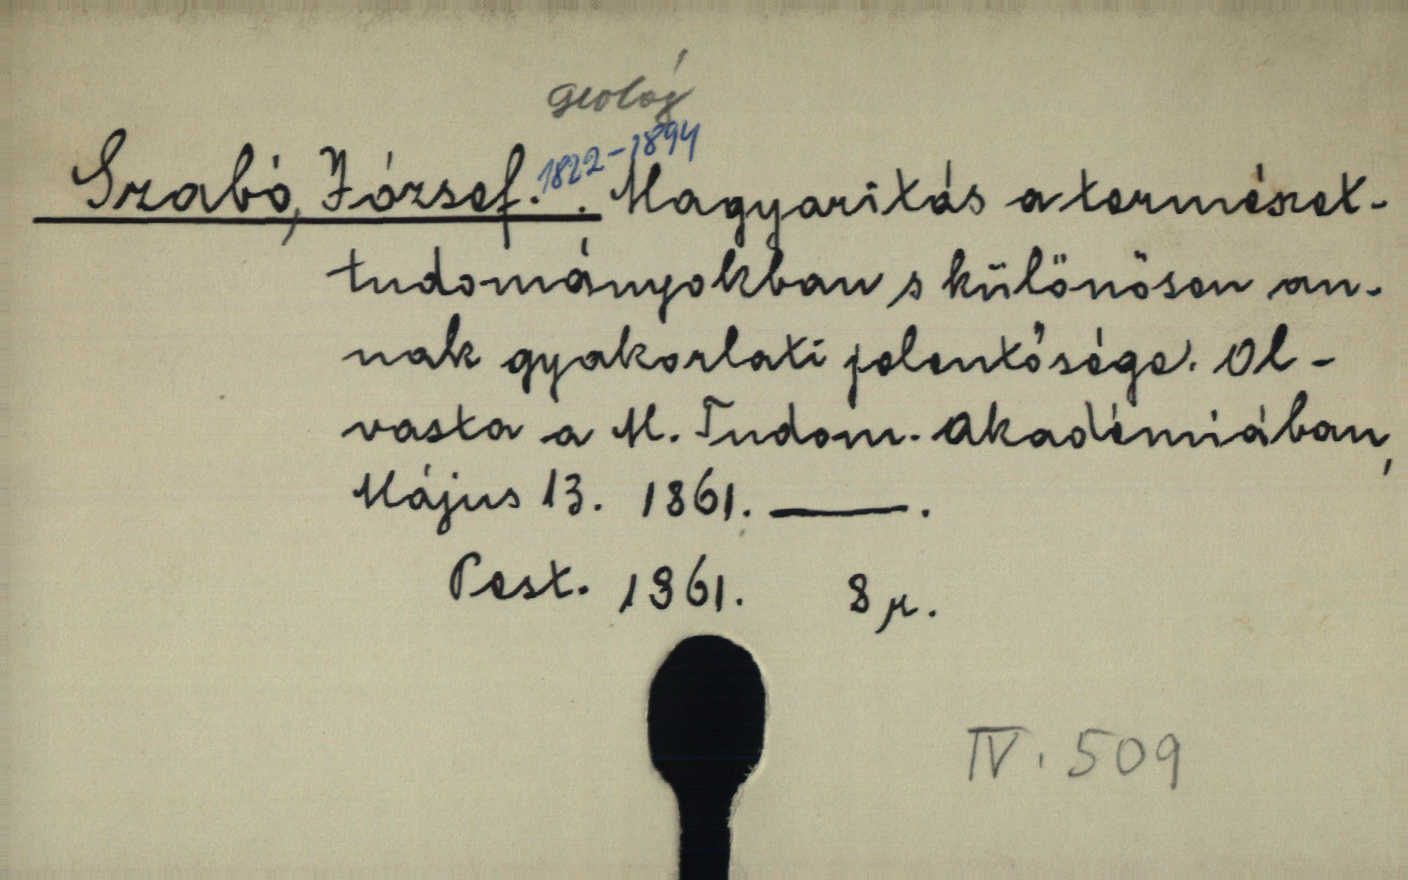 geológ
Szabó, József. 1822-1894. Magyaritás a természet-
tudományokban s különösen an-
nak gyakorlati jelentősége. Ol-
vasta a M. Tudom. Akadémiában,
Május 13. 1861. —.
Pest. 1861. 8 r.
IV. 509